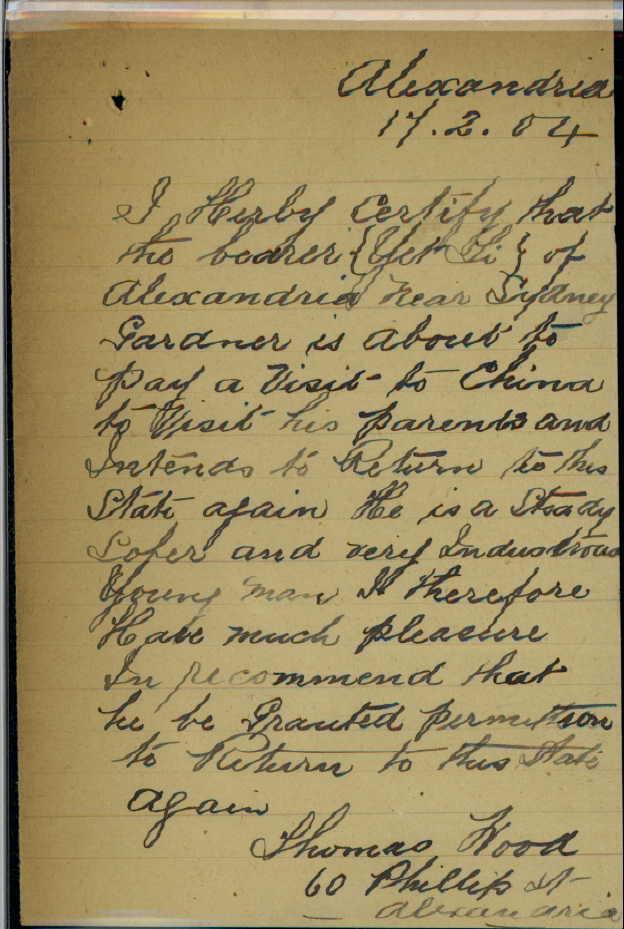 Alexandria
17.2.04
I Herby Certify that
the bearer {Yet Gi} of
Alexandria near Sydney
Gardner is about to
pay a Visit to China
to Visit his parents and
Intends to Return to this
State again He is a Steady
Sober and very Industrious
Young man I therefore
Have much pleasure
In recommend that
he be Granted permission
to Return to this State
again
Thomas Wood
60 Phillip St
Alexandria